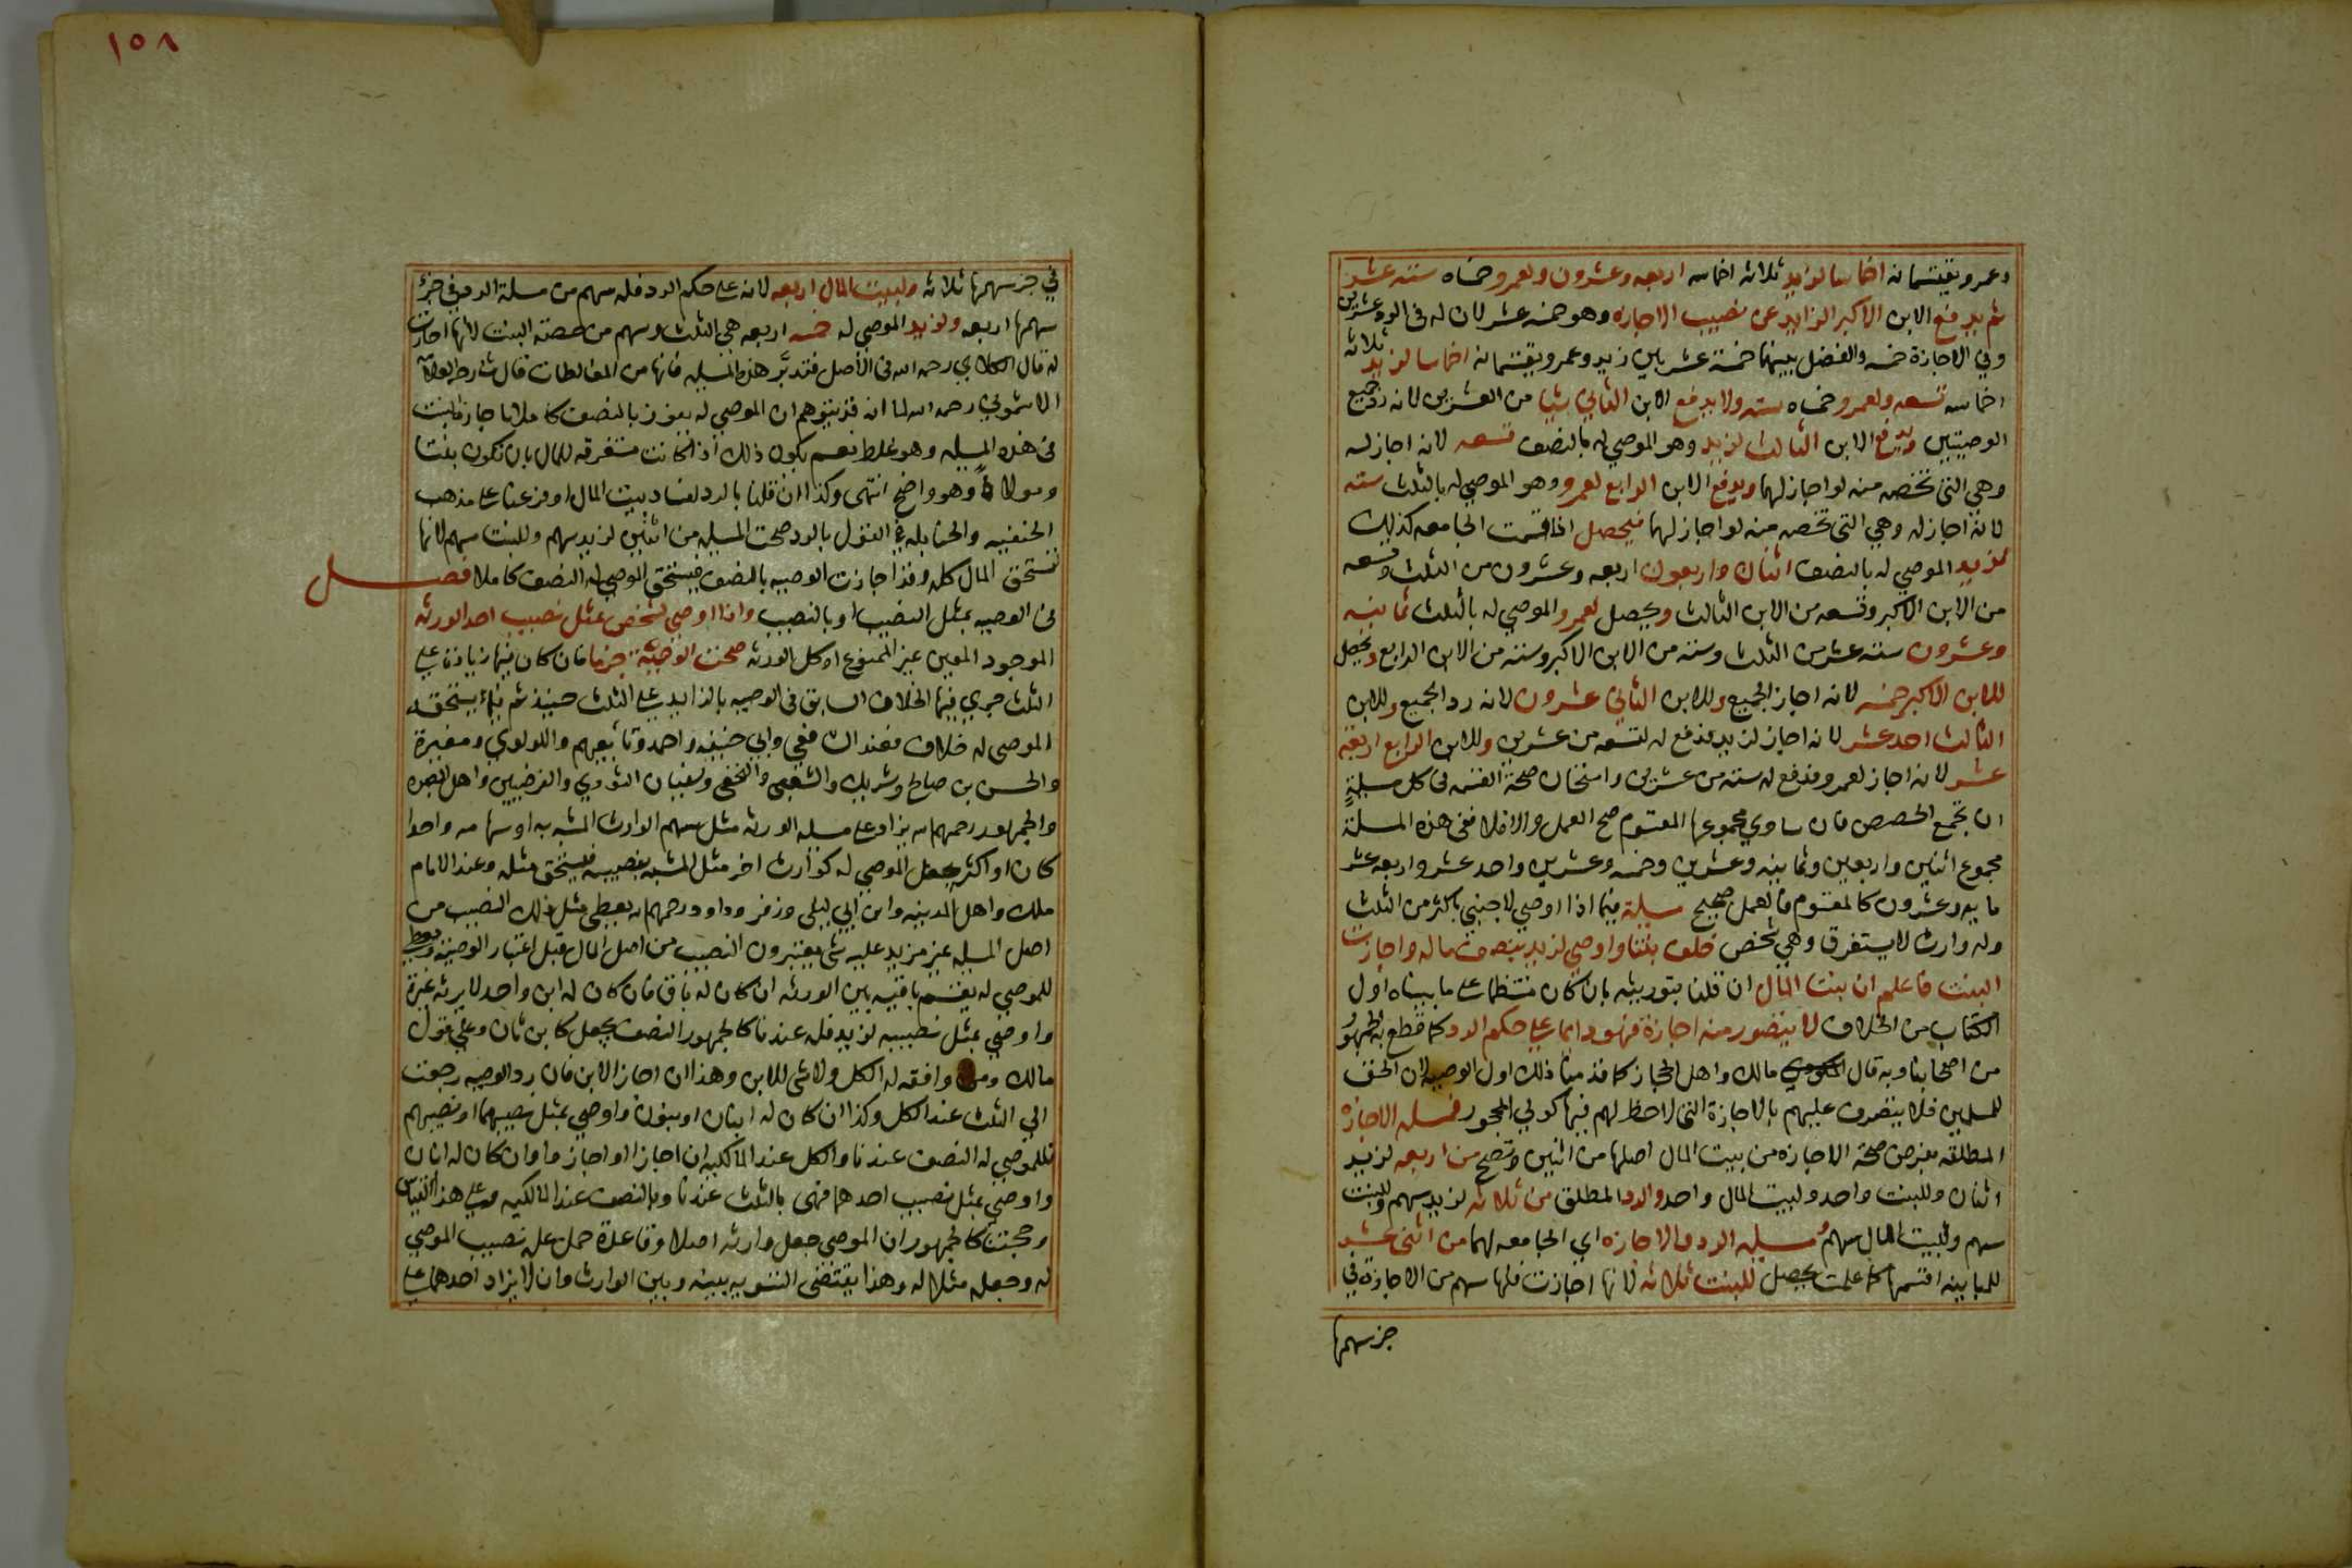 وعمرو يقتسمانه اخماسا لزيد ثلاثة اخماسه اربعه وعشرون ولعمرو خمساه ستة عشر
ثم يدفع الابن الاكبر الزايد عن نصيب الاجازه وهو خمسة عشر لان له فى الرد عشرين
وفي الاجازة خمسه والفضل بينهما خمسة عشر بين زيد وعمرو يقتسمانه اخماسا لزيد ثلاثة
اخماسه تسعه ولعمرو خمساه سته ولا يدفع الابن الثاني شيا من العشرين لانه رد جميع
الوصيتين ويدفع الابن الثالث لزيد وهو الموصي له بالنصف تسعه لانه اجاز له
وهي التي تخصه منه لو اجاز لهما ويدفع الابن الرابع لعمرو وهو الموصي له بالثلث سته
لانه اجاز له وهي التي تخصه منه لو اجاز لهما فيحصل اذا قسمت الجامعه كذلك
لزيد الموصي له بالنصف اثنان واربعون اربعه وعشرون من الثلث وتسعه
من الابن الاكبر وتسعه من الابن الثالث ويحصل لعمرو الموصي له بالثلث ثمانيه
وعشرون ستة عشر من الثلث وسته من الابن الاكبر وسته من الابن الرابع ويحصل
للابن الاكبر خمسه لانه اجاز الجميع وللابن الثاني عشرون لانه رد الجميع وللابن
الثالث احد عشر لانه اجاز لزيد فدفع له تسعه من عشرين وللابن الرابع اربعة
عشر لانه اجاز لعمرو فدفع له سته من عشرين وامتحان صحة القسمه فى كل مسيلةٍ
ان تجمع الحصص فان ساوي مجموعها المقسوم صح العمل والا فلا ففى هذه المسلة
مجموع اثنين واربعين وثمانيه وعشرين وخمسه وعشرين واحد عشر واربعه عشر
مايه وعشرون كالمقسوم فالعمل صحيح مسيلة فيما اذا اوصي لاجنبي باكثر من الثلث
وله وارث لا يستغرق وهي شخص خلف بنتا واوصي لزيد بنصف ماله واجازت
البنت فاعلم ان بيت المال ان قلنا بتوريثه بان كان منتظما على ما بيناه اول
الكتاب من الخلاف لا يتصور منه اجازة فهو دايما على حكم الرد كما قطع به الجمهور
من اصحابنا وبه قال مالك واهل الحجاز كما قدمنا ذلك اول الوصيه لان الحق
للمسلمين فلا يتصرف عليهم بالاجازة التي لاحظ لهم فيها كولي المحجور فمسلة الاجازه
المطلقه بفرض صحة الاجازه من بيت المال اصلها من اثنين وتصح من اربعه لزيد
اثنان وللبنت واحد ولبيت المال واحد والرد المطلق من ثلاثه لزيد سهم وللبنت
سهم ولبيت المال سهم مسيلة الرد والاجازه اي الجامعه لهما من اثنى عشر
للمباينه اقسمها كما علمت يحصل للبنت ثلاثه لانها اجازت فلها سهم من الاجازة في
جز سهمها
١٥٨
في جز سهمها ثلاثه ولبيت المال اربعه لانه على حكم الرد فله سهم من مسلة الرد في جزء
سهمها اربعه ولزيد الموصي له خمسه اربعه هي الثلث وسهم من حصة البنت لانها اجازت
له قال الكلاي رحمه الله فى الاصل فتدبر هذه المسيله فانها من المغالطات قال شارطه
الاشموني رحمه الله لما انه قد يتوهم ان الموصي له يفوز بالنصف كاملا باجازة البنت
فى هذه المسيله وهو غلط نعم يكون ذلك اذا كانت مستغرقه للمال بان تكون بنتا
ومولاة وهو واضح انتهى وكذا ان قلنا بالرد لفساد بيت المال او فرعنا على مذهب
الحنفيه والحنابله فى القول بالرد صحت المسيله من اثنين لزيد سهم وللبنت سهم لانها
تستحق المال كله وقد اجازت الوصيه بالنصف فيستحق الموصي له النصف كاملا فصــل
فى الوصيه بمثل النصيب او بالنصيب واذا اوصى لشخص بمثل نصيب احد الورثه
الموجود المعين غير الممنوع او كل الورثه صحت الوصية جزما فان كان فيها زيادة على
الثلث جري فيها الخلاف السابق فى الوصيه بالزايد على الثلث حينيذ ثم فيما يستحقه
الموصى له خلاف فعند الشافعي وابي حنيفه واحمد وتابعيهم واللولوي ومغيرة
والحسن بن صالح وشريك والشعبى والنخعى وسفيان الثوري والفرضيين واهل البصره
والجمهور رحمهم الله يزاد على مسيله الورثه مثل سهم الوارث المشبه به او سهامه واحدا
كان او اكثر يجعل الموصي له كوارث اخر مثل المشبه بنصيبه فيستحق مثله وعند الامام
ملك واهل المدينه وابن ابي ليلى وزفر وداود رحمهم الله يعطي مثل ذلك النصيب من
اصل المسيله غير مزيد عليه شى يعتبرون النصيب من اصل المال قبل اعتبار الوصية ويعطي
للموصي له يقسم باقيه بين الورثه ان كان له باق فان كان له ابن واحد لا يرثه غيرة
واوصي بمثل نصيبه لزيد فله عندنا كالجمهور النصف يجعل كابن ثان وعلي قول
مالك ومن وافقه له الكل ولا شى للابن وهذا ان اجاز الابن فان رد الوصيه رجعت
الي الثلث عند الكل وكذا ان كان له ابنان او بنون واوصي بمثل نصيبهما او نصيبهم
فللموصي له النصف عندنا والكل عند المالكيه ان اجازا او اجازوا وان كان له ابنان
واوصي بمثل نصيب احدهما فهى بالثلث عندنا وبالنصف عند المالكيه وعلى هذا القياس
وحجتنا كالجمهور ان الموصي جعل وارثه اصلا وقاعدة حمل عليه نصيب الموصي
له وجعله مثلا له وهذا يقتضى التسويه بينه وبين الوارث وان لا يزاد احدهما على